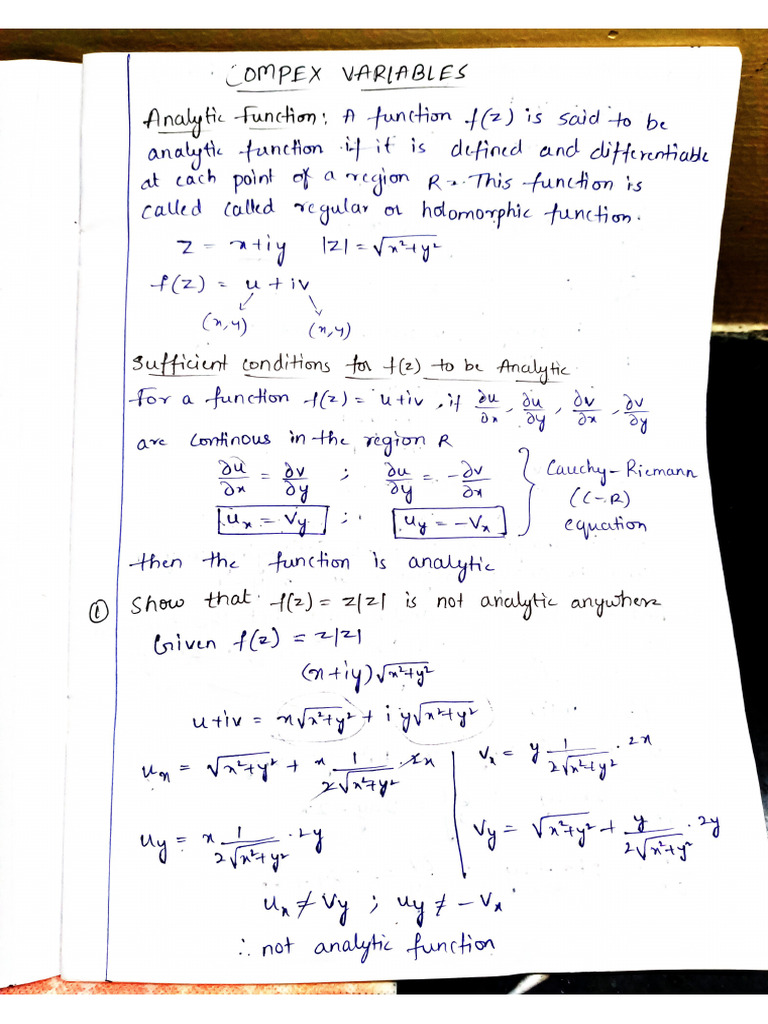 COMPEX VARIABLES
Analytic Function: A function f(z) is said to be
analytic function if it is defined and differentiable
at each point of a region R. This function is
called called regular or holomorphic function.
z = x+iy |z| = √x²+y²
f(z) = u + iv
(x,y) (x,y)
Sufficient conditions for f(z) to be Analytic
For a function f(z) = u+iv, if ∂u/∂x, ∂u/∂y, ∂v/∂x, ∂v/∂y
are continous in the region R
∂u/∂x = ∂v/∂y ; ∂u/∂y = -∂v/∂x } Cauchy-Riemann
(C-R)
ux = vy ; uy = -vx equation
then the function is analytic
① Show that f(z) = z|z| is not analytic anywhere
Given f(z) = z|z|
(x+iy)√x²+y²
u+iv = x√x²+y² + i y√x²+y²
ux = √x²+y² + x 1/2√x²+y² · 2x
vx = y 1/2√x²+y² · 2x
uy = x 1/2√x²+y² · 2y
vy = √x²+y² + y/2√x²+y² · 2y
ux ≠ vy ; uy ≠ -vx
∴ not analytic function